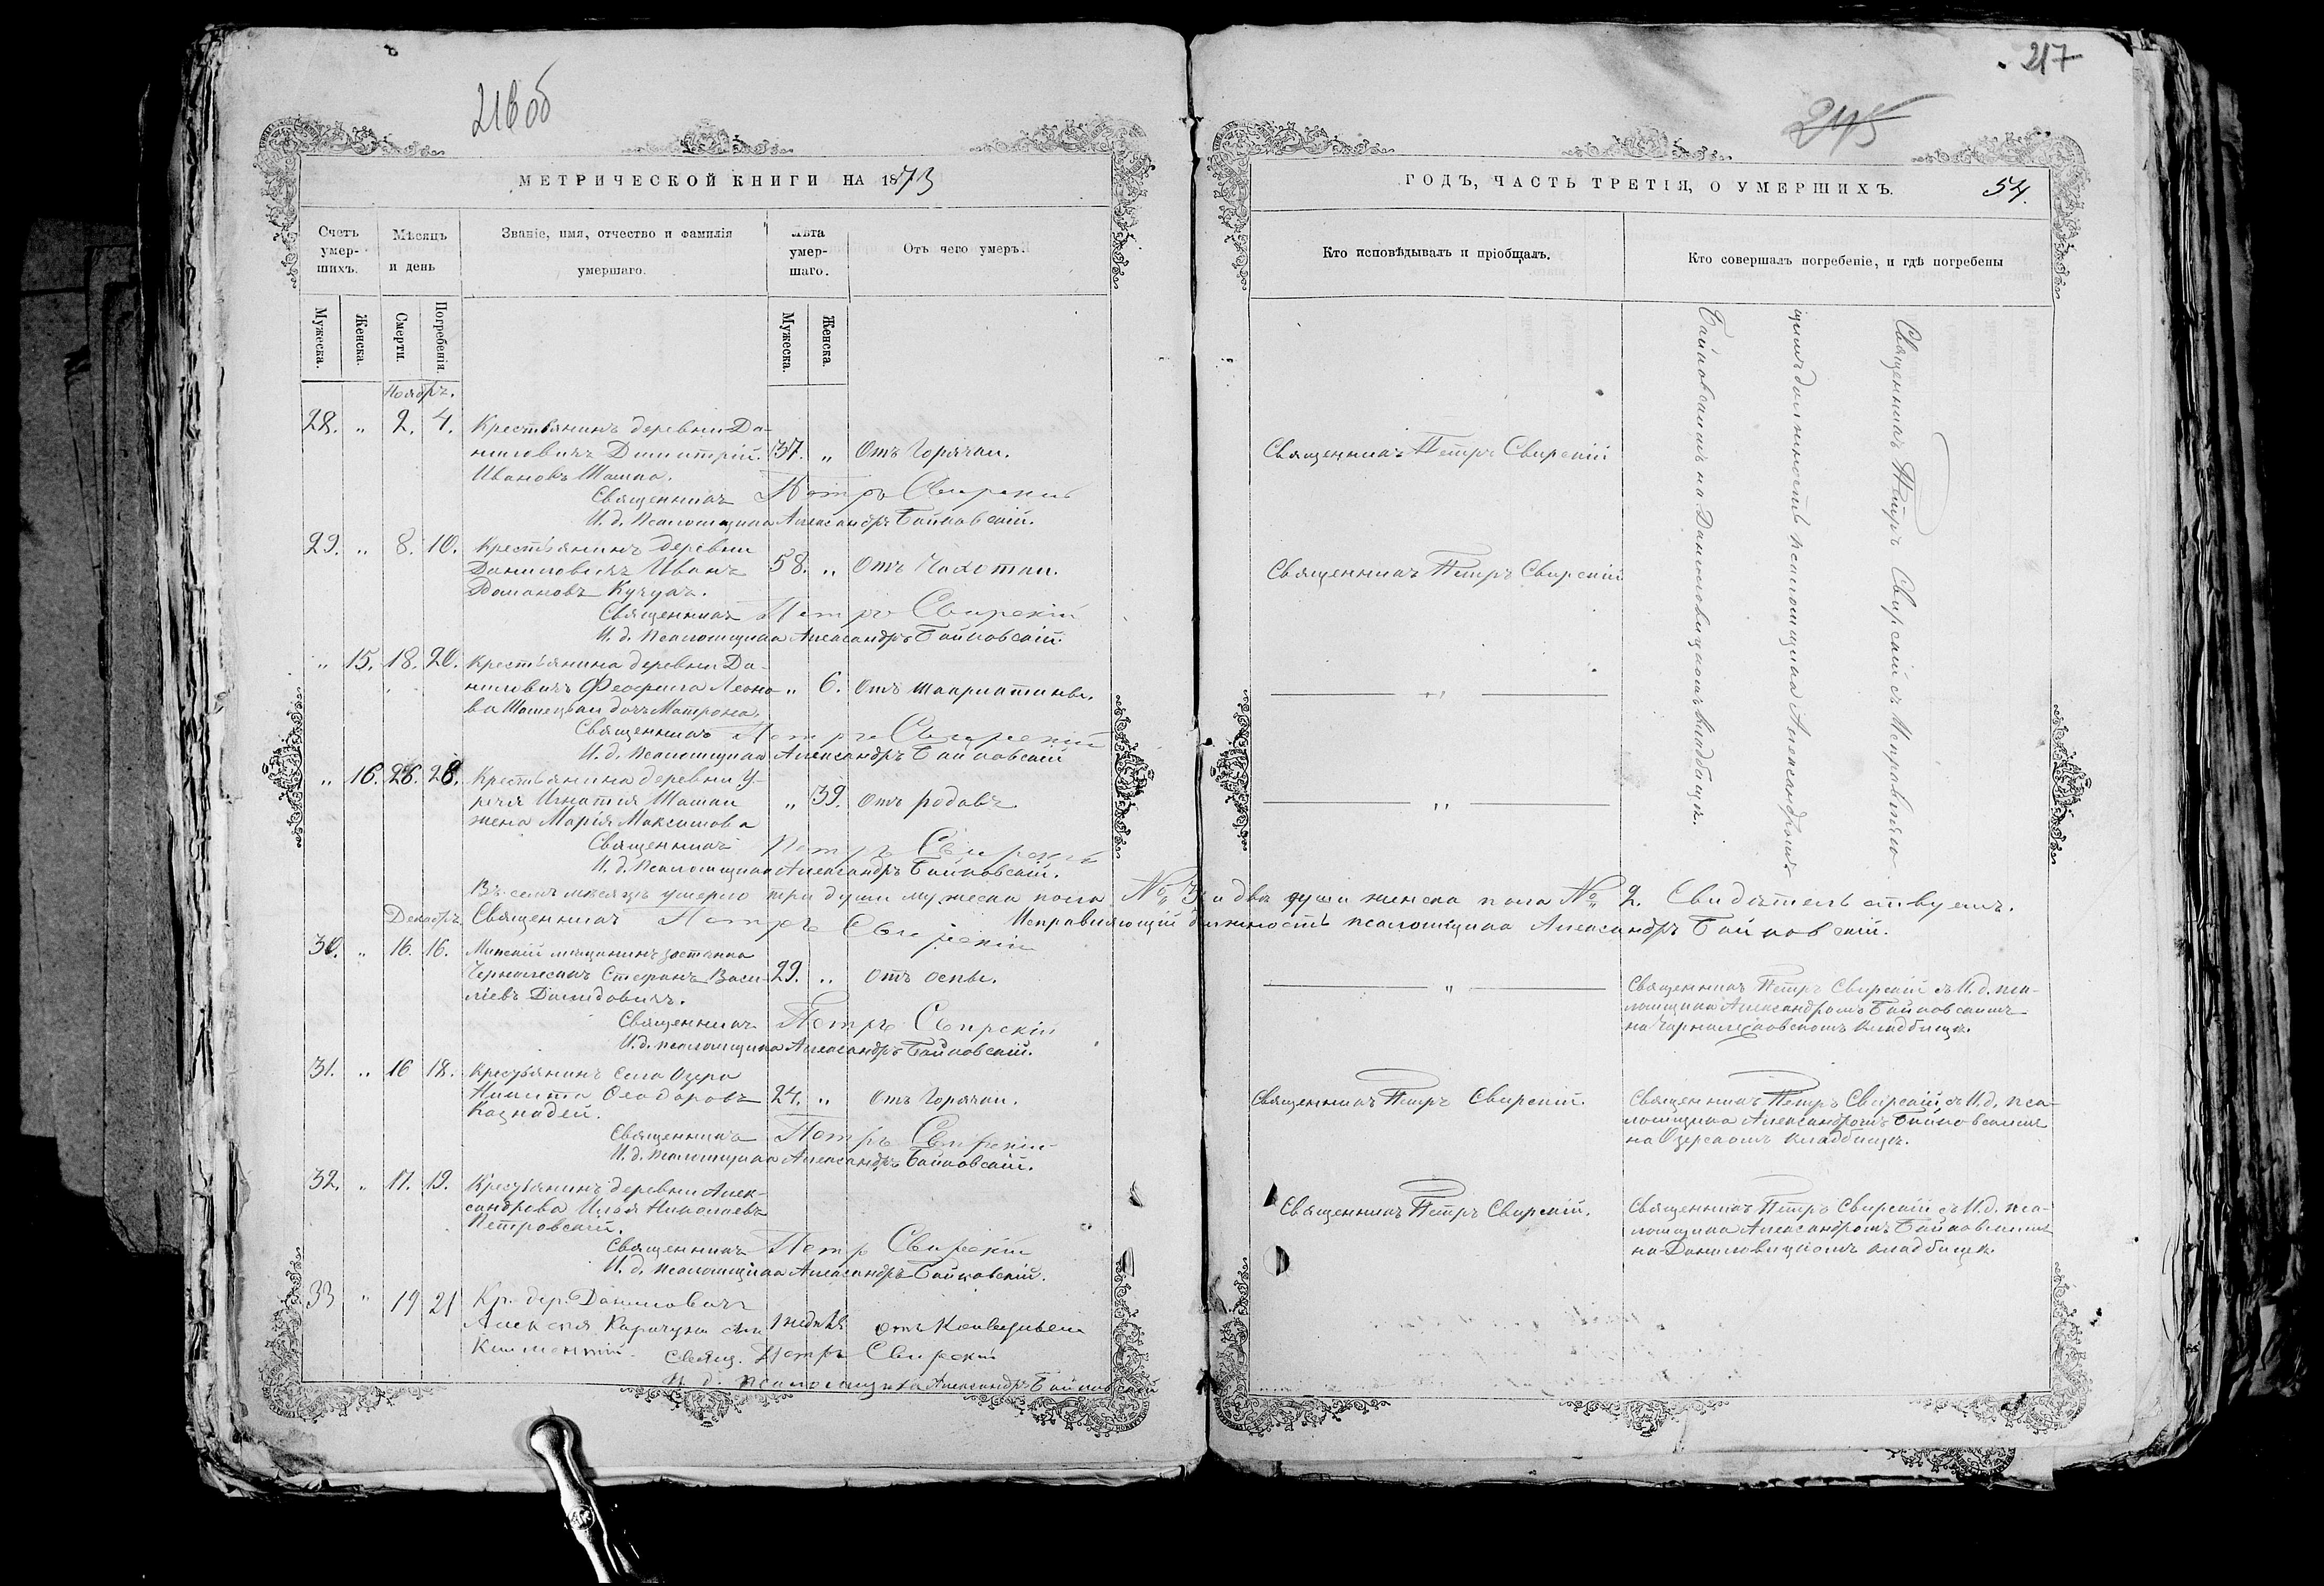 216 об
МЕТРИЧЕСКОЙ КНИГИ НА 1873
Счетъ умер-шихъ.
Мѣсяцъ и день
Званіе, имя, отчество и фамилія умершаго.
Лѣта умер-шаго.
Отъ чего умеръ.
Мужеска.
Женска.
Смерти.
Погребенія.
Мужеска.
Женска.
Ноябрь.
28. „ 2. 4. Крестьянинъ деревни Да-
ниловичъ Димитрій 37. „ Отъ горячки.
Ивановъ Машка.
Священникъ Петръ Свирскій
И. д. Псаломщика Александръ Байковскій.
29. „ 8. 10. Крестьянинъ деревни
Даниловичъ Иванъ 58. „ Отъ чахотки.
Романовъ Кучукъ.
Священникъ Петръ Свирскій
И. д. Псаломщика Александръ Байковскій.
„ 15. 18. 20. Крестьянина деревни Да-
ниловичъ Феофила Леоно- „ 6. Отъ шкарлатины.
ва дочь Матрона.
Священникъ Петръ Свирскій
И. д. Псаломщика Александръ Байковскій
„ 16. 26. 28. Крестьянина деревни У-
речья Игнатія Машки „ 39. отъ родовъ
жена Марія Максимова
Священникъ Петръ Свирскій
И. д. Псаломщика Александръ Байковскій.
Въ семъ мѣсяцѣ умерло три души мужеска пола № 3, и двѣ души женска пола № 2. Свидѣтельствуемъ.
Священникъ Петръ Свирскій Исправляющій должность псаломщика Александръ Байковскій.
Декабрь
30. „ 16. 16. Минскій мѣщанинъ застѣнка
Степанъ Васи- 29. „ отъ оспы.
ліевъ Демидовичъ.
Священникъ Петръ Свирскій
И. д. псаломщика Александръ Байковскій.
31. „ 16 18. Крестьянинъ села Озера
Никита Ѳеодоровъ 24. „ Отъ горячки.
Казнадей.
Священникъ Петръ Свирскій
И. д. псаломщика Александръ Байковскій.
32. „ 17. 19. Крестьянинъ деревни Алек-
сандрова Илья Николаевъ
Петровскій.
Священникъ Петръ Свирскій
И. д. псаломщика Александръ Байковскій.
33 „ 19 21 Кр. дер. Даниловичъ
Алексѣя Карачуна сынъ 1 недѣля отъ
Климентій.
Свящ. Петръ Свирскій
И. д. псаломщика Александръ Байковскій
217
245
ГОДЪ, ЧАСТЬ ТРЕТІЯ, О УМЕРШИХЪ.
54.
Кто исповѣдывалъ и пріобщалъ.
Кто совершалъ погребеніе, и гдѣ погребены
Священникъ Петръ Свирскій
Священникъ Петръ Свирскій
„
„
Священникъ Петръ Свирскій съ исправляю-
щимъ должность псаломщика Александромъ
Байковскимъ на Даниловицкомъ кладбищѣ.
„
Священникъ Петръ Свирскій съ И. д. пса-
ломщика Александромъ Байковскимъ
на кладбищѣ.
Священникъ Петръ Свирскій.
Священникъ Петръ Свирскій съ И. д. пса-
ломщика Александромъ Байковскимъ
на Озерскомъ кладбищѣ.
Священникъ Петръ Свирскій.
Священникъ Петръ Свирскій съ И. д. пса-
ломщика Александромъ Байковскимъ
на Даниловицкомъ кладбищѣ.